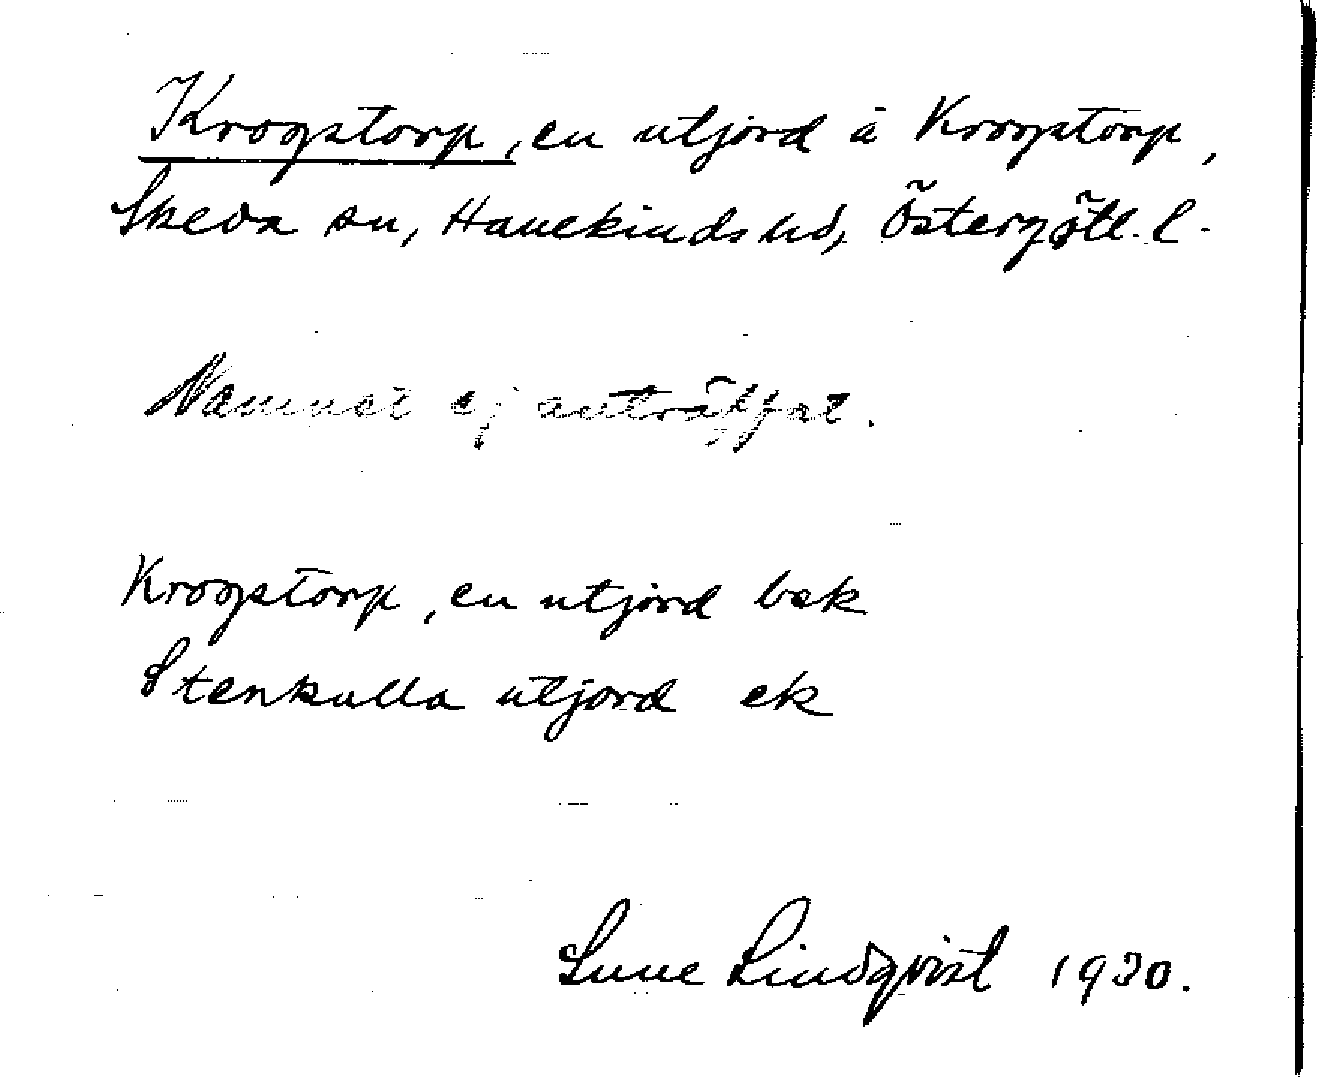 Krogstorp, en utjord å Krogstorp,
Skeda sn, Hanekinds hd, Östergötl. l.
Namnet ej anträffat.
Krogstorp, en utjord bsk
Stenkulla utjord ek
Sune Lindqvist 1930.